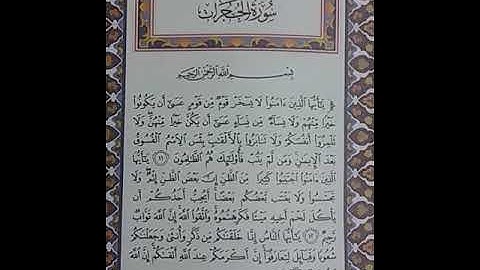 سُورَةُ الحُجُرَات
بِسْمِ اللَّهِ الرَّحْمَٰنِ الرَّحِيمِ
يَٰٓأَيُّهَا الَّذِينَ ءَامَنُوا لَا يَسْخَرْ قَوْمٌ مِّن قَوْمٍ عَسَىٰٓ أَن يَكُونُوا
خَيْرًا مِّنْهُمْ وَلَا نِسَآءٌ مِّن نِّسَآءٍ عَسَىٰٓ أَن يَكُنَّ خَيْرًا مِّنْهُنَّ وَلَا
تَلْمِزُوٓا أَنفُسَكُمْ وَلَا تَنَابَزُوا بِالْأَلْقَٰبِ بِئْسَ الِاسْمُ الْفُسُوقُ
بَعْدَ الْإِيمَٰنِ وَمَن لَّمْ يَتُبْ فَأُولَٰٓئِكَ هُمُ الظَّٰلِمُونَ ١١ يَٰٓأَيُّهَا
الَّذِينَ ءَامَنُوا اجْتَنِبُوا كَثِيرًا مِّنَ الظَّنِّ إِنَّ بَعْضَ الظَّنِّ إِثْمٌ وَلَا
تَجَسَّسُوا وَلَا يَغْتَب بَّعْضُكُم بَعْضًا أَيُحِبُّ أَحَدُكُمْ أَن
يَأْكُلَ لَحْمَ أَخِيهِ مَيْتًا فَكَرِهْتُمُوهُ وَاتَّقُوا اللَّهَ إِنَّ اللَّهَ تَوَّابٌ
رَّحِيمٌ ١٢ يَٰٓأَيُّهَا النَّاسُ إِنَّا خَلَقْنَٰكُم مِّن ذَكَرٍ وَأُنثَىٰ وَجَعَلْنَٰكُمْ
شُعُوبًا وَقَبَآئِلَ لِتَعَارَفُوٓا إِنَّ أَكْرَمَكُمْ عِندَ اللَّهِ أَتْقَىٰكُمْ إِنَّ اللَّهَ